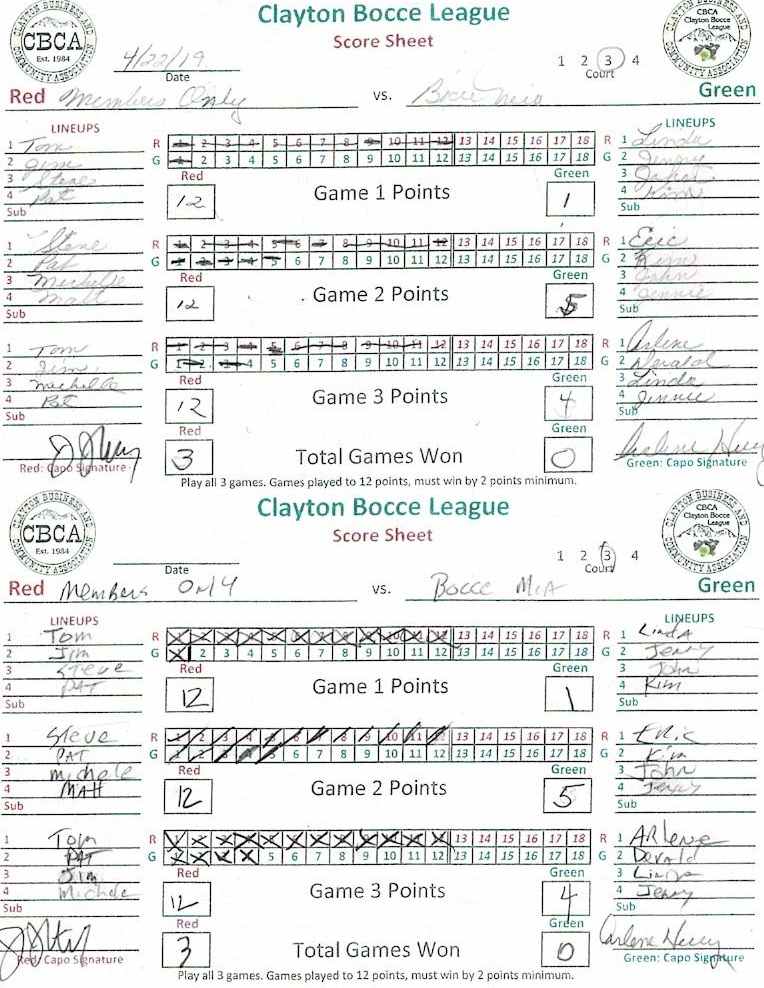 Clayton Bocce League
CLAYTON BUSINESS AND COMMUNITY ASSOCIATION
CBCA
Est. 1984
CBCA
Clayton Bocce
League
Score Sheet
4/22/19
Date
1 2 3 4
Court
Red Members Only vs. Green
LINEUPS LINEUPS
1 Tom R 1 2 3 4 5 6 7 8 9 10 11 12 13 14 15 16 17 18 R 1 Linda
2 Jim G 1 2 3 4 5 6 7 8 9 10 11 12 13 14 15 16 17 18 G 2 Jerry
3 Steve Red Green 3
4 Pat 12 Game 1 Points 1 4 Kim
Sub Sub
1 Steve R 1 2 3 4 5 6 7 8 9 10 11 12 13 14 15 16 17 18 R 1 Eric
2 Pat G 1 2 3 4 5 6 7 8 9 10 11 12 13 14 15 16 17 18 G 2 Kim
3 Michelle Red Green 3 John
4 Matt 12 Game 2 Points 5 4 Jennie
Sub Sub
1 Tom R 1 2 3 4 5 6 7 8 9 10 11 12 13 14 15 16 17 18 R 1 Arlene
2 Jim G 1 2 3 4 5 6 7 8 9 10 11 12 13 14 15 16 17 18 G 2
3 Michelle Red Green 3 Linda
4 Pat 12 Game 3 Points 4 4 Jennie
Sub Red Green Sub
3 Total Games Won 0
Red: Capo Signature Green: Capo Signature
Play all 3 games. Games played to 12 points, must win by 2 points minimum.
Clayton Bocce League
CLAYTON BUSINESS AND COMMUNITY ASSOCIATION
CBCA
Est. 1984
CBCA
Clayton Bocce
League
Score Sheet
Date
1 2 3 4
Court
Red Members Only vs. Bocce MiA Green
LINEUPS LINEUPS
1 Tom R 1 2 3 4 5 6 7 8 9 10 11 12 13 14 15 16 17 18 R 1 Linda
2 Jim G 1 2 3 4 5 6 7 8 9 10 11 12 13 14 15 16 17 18 G 2 Jerry
3 Steve Red Green 3 John
4 PAT 12 Game 1 Points 1 4 Kim
Sub Sub
1 Steve R 1 2 3 4 5 6 7 8 9 10 11 12 13 14 15 16 17 18 R 1 Eric
2 PAT G 1 2 3 4 5 6 7 8 9 10 11 12 13 14 15 16 17 18 G 2 Kim
3 Michele Red Green 3 John
4 MATT 12 Game 2 Points 5 4 Jerry
Sub Sub
1 Tom R 1 2 3 4 5 6 7 8 9 10 11 12 13 14 15 16 17 18 R 1 ARLene
2 PAT G 1 2 3 4 5 6 7 8 9 10 11 12 13 14 15 16 17 18 G 2
3 Jim Red Green 3 Linda
4 Michele 12 Game 3 Points 4 4 Jerry
Sub Red Green Sub
3 Total Games Won 0
Red: Capo Signature Green: Capo Signature
Play all 3 games. Games played to 12 points, must win by 2 points minimum.